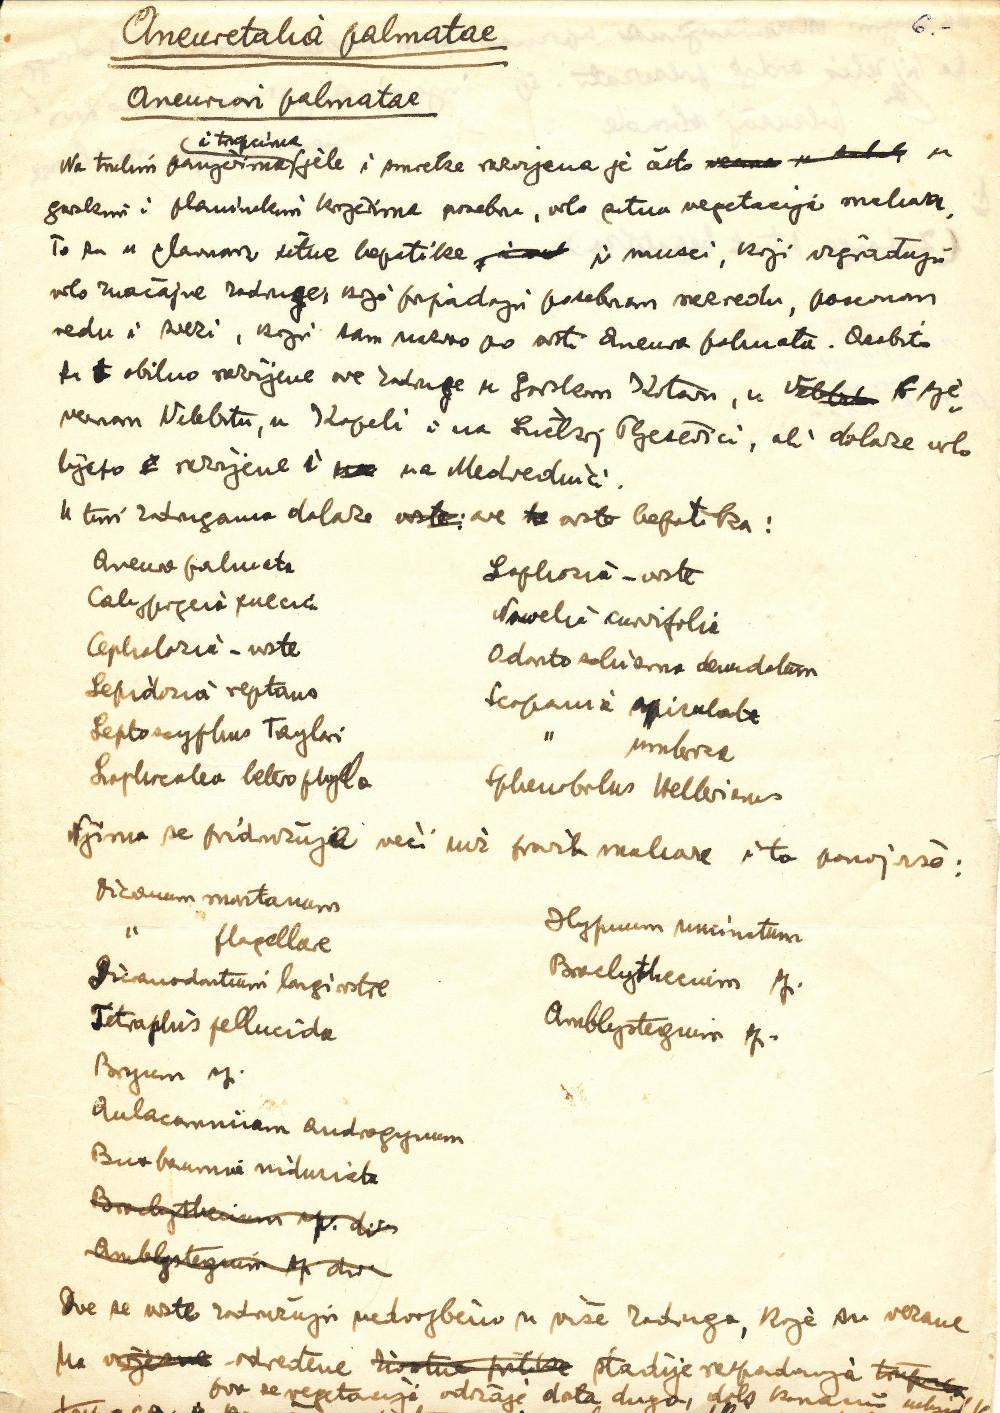 6.-
Aneuretalia palmatae
Aneurion palmatae
i trupcima
Na trulim panjevima jele i smreke razvijena je često u
gorskim i planinskim krajevima posebna, vrlo sitna vegetacija mahova.
To su u glavnom sitne hepatike i musci, koji izgrađuju
vrlo značajne zadruge, koje pripadaju posebnom razredu, posebnom
redu i svezi, koju sam nazvao po vrsti Aneura palmata. Osobito
su obilno razvijene ove zadruge u Gorskom Kotaru, u Sje-
vernom Velebitu, u Kapeli i na Ličkoj Plješevici, ali dolaze vrlo
lijepo razvijene i na Medvednici.
U tim zadrugama dolaze ove vrste hepatika:
Aneura palmata
Calypogeia suecica
Cephalozia - vrste
Lepidozia reptans
Leptoscyphus Taylori
Lophocolea heterophylla
Lophozia - vrste
Nowelia curvifolia
Odontoschisma denudatum
Scapania apiculata
" umbrosa
Sphenobolus Hellerianus
Njima se pridružuje veći niz pravih mahova i to ponajviše:
Dicranum montanum
" flagellare
Dicranodontium longirostre
Tetraphis pellucida
Bryum sp.
Aulacomnium androgynum
Buxbaumia indusiata
Brachythecium sp. div.
Amblystegium sp. div.
Hypnum uncinatum
Brachythecium sp.
Amblystegium sp.
Ove se vrste zadružuju nedvojbeno u više zadruga, koje su vezane
na određene stadije raspadanja
se vegetacija održaje dosta dugo, dok konačno